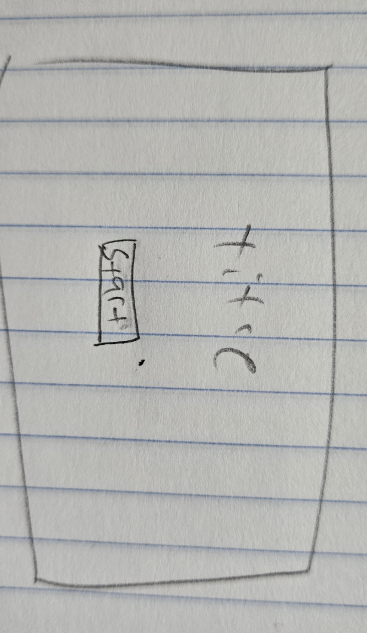 title
start